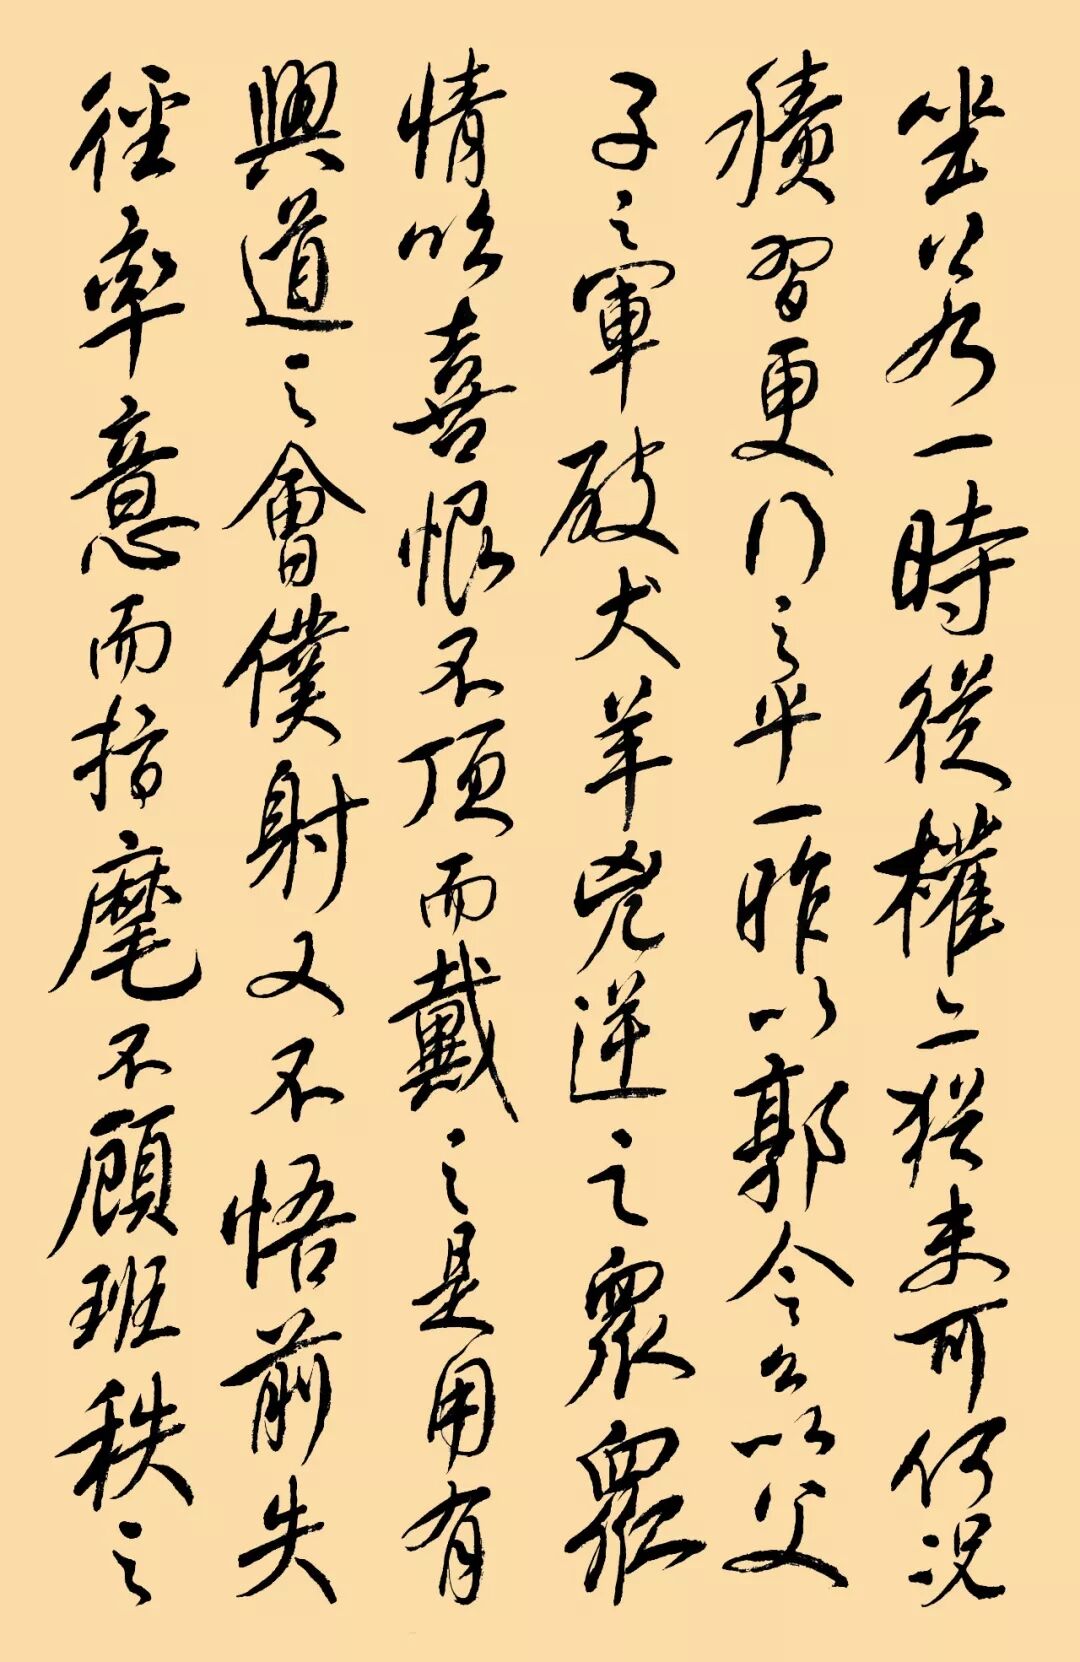 坐若一時從權亦猶未可何況
積習更行之乎一昨以郭令公以父
子之軍破犬羊兇逆之眾眾
情欣喜恨不頂而戴之是用有
興道之會僕射又不悟前失
徑率意而指麾不顧班秩之